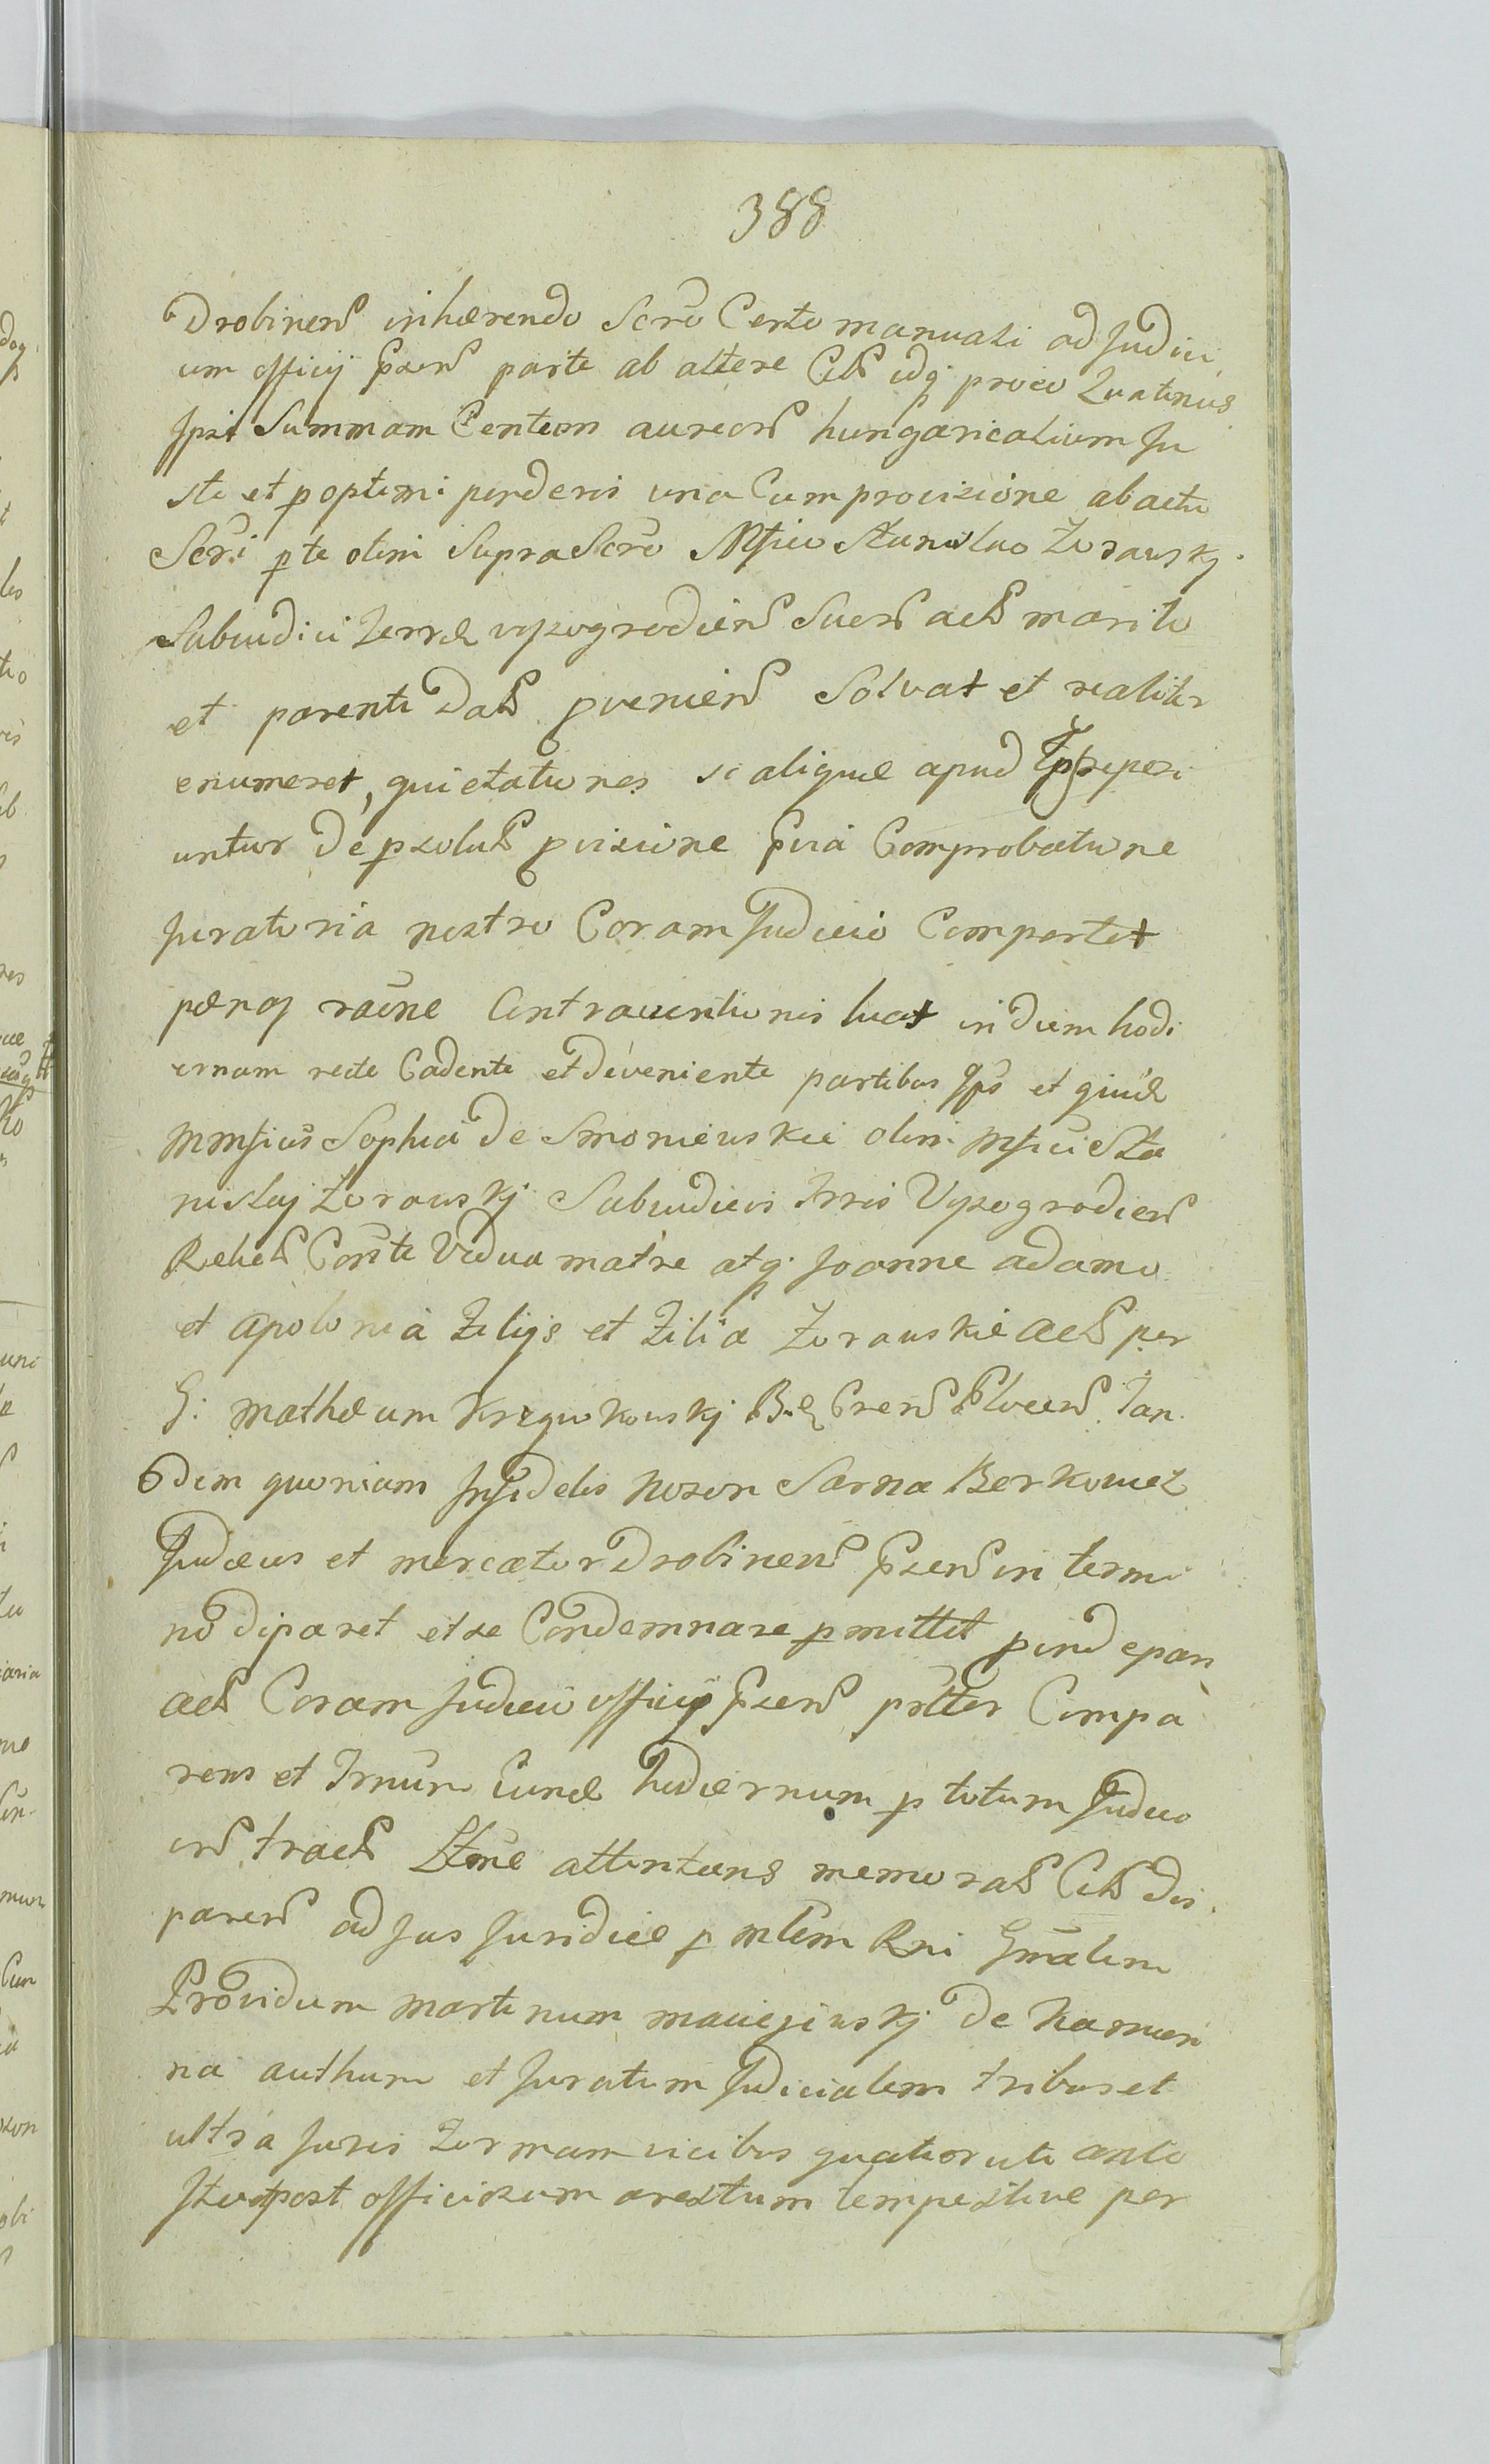 388
Drobinen inhærendo Scro Certo manuali ad Judici
um officij pzen parte ab altere Cit idq proeo Quatinus
Jpsis Summam Centum aureor hungaricalium Ju
sti et p optimi ponderis una Cum provisione ab actu
Scri p te olim SupraScro Mfico Stanislao Zorawskj
Subiudici Terræ wyszogrodien Suen act marito
et parenti Dat pvenien Solvat et realiter
enumeret, quietationes si aliquæ apud reperi
untur De pzolut pvisione pvia Comprobatione
Juratoria nostro Coram Judicio Comportet
pænas raōne Contraventionis luat in diem hodi
ernam recte Cadente et deveniente partibus Jpis et
Mmficis Sophia De Smoniewskie olim Mfici Sta
nislaj Zorawskj Subiudicis Trris Wyszogrodien
Relict Consrte Vidua matre atq Joanne adamo
et apolonia Filijs et Filia Zorawskie act per
G: Mathæum Krzywkowskj Plocen Tan
dem quoniam Jnfidelis Noson Sarna Berkowicz
Judæus et mercator Drobinen pzen in termi
no diparet et se Condemnare pmittit pind e parr
act Coram Judicio officij pzen pnlter Compa
rens et Trnum Eund hodiernum p totum Judico
tract attentans memorat Cit dis
paren ad Jus Juridice p mtem Rni Gnralem
Providum Martinum maciejewskj De Kamien
na authum et Juratum Judicialem tribus et
ultra Juris Formam vicibus quatior uti ante
Jta et post officiosum arestum tempestive per